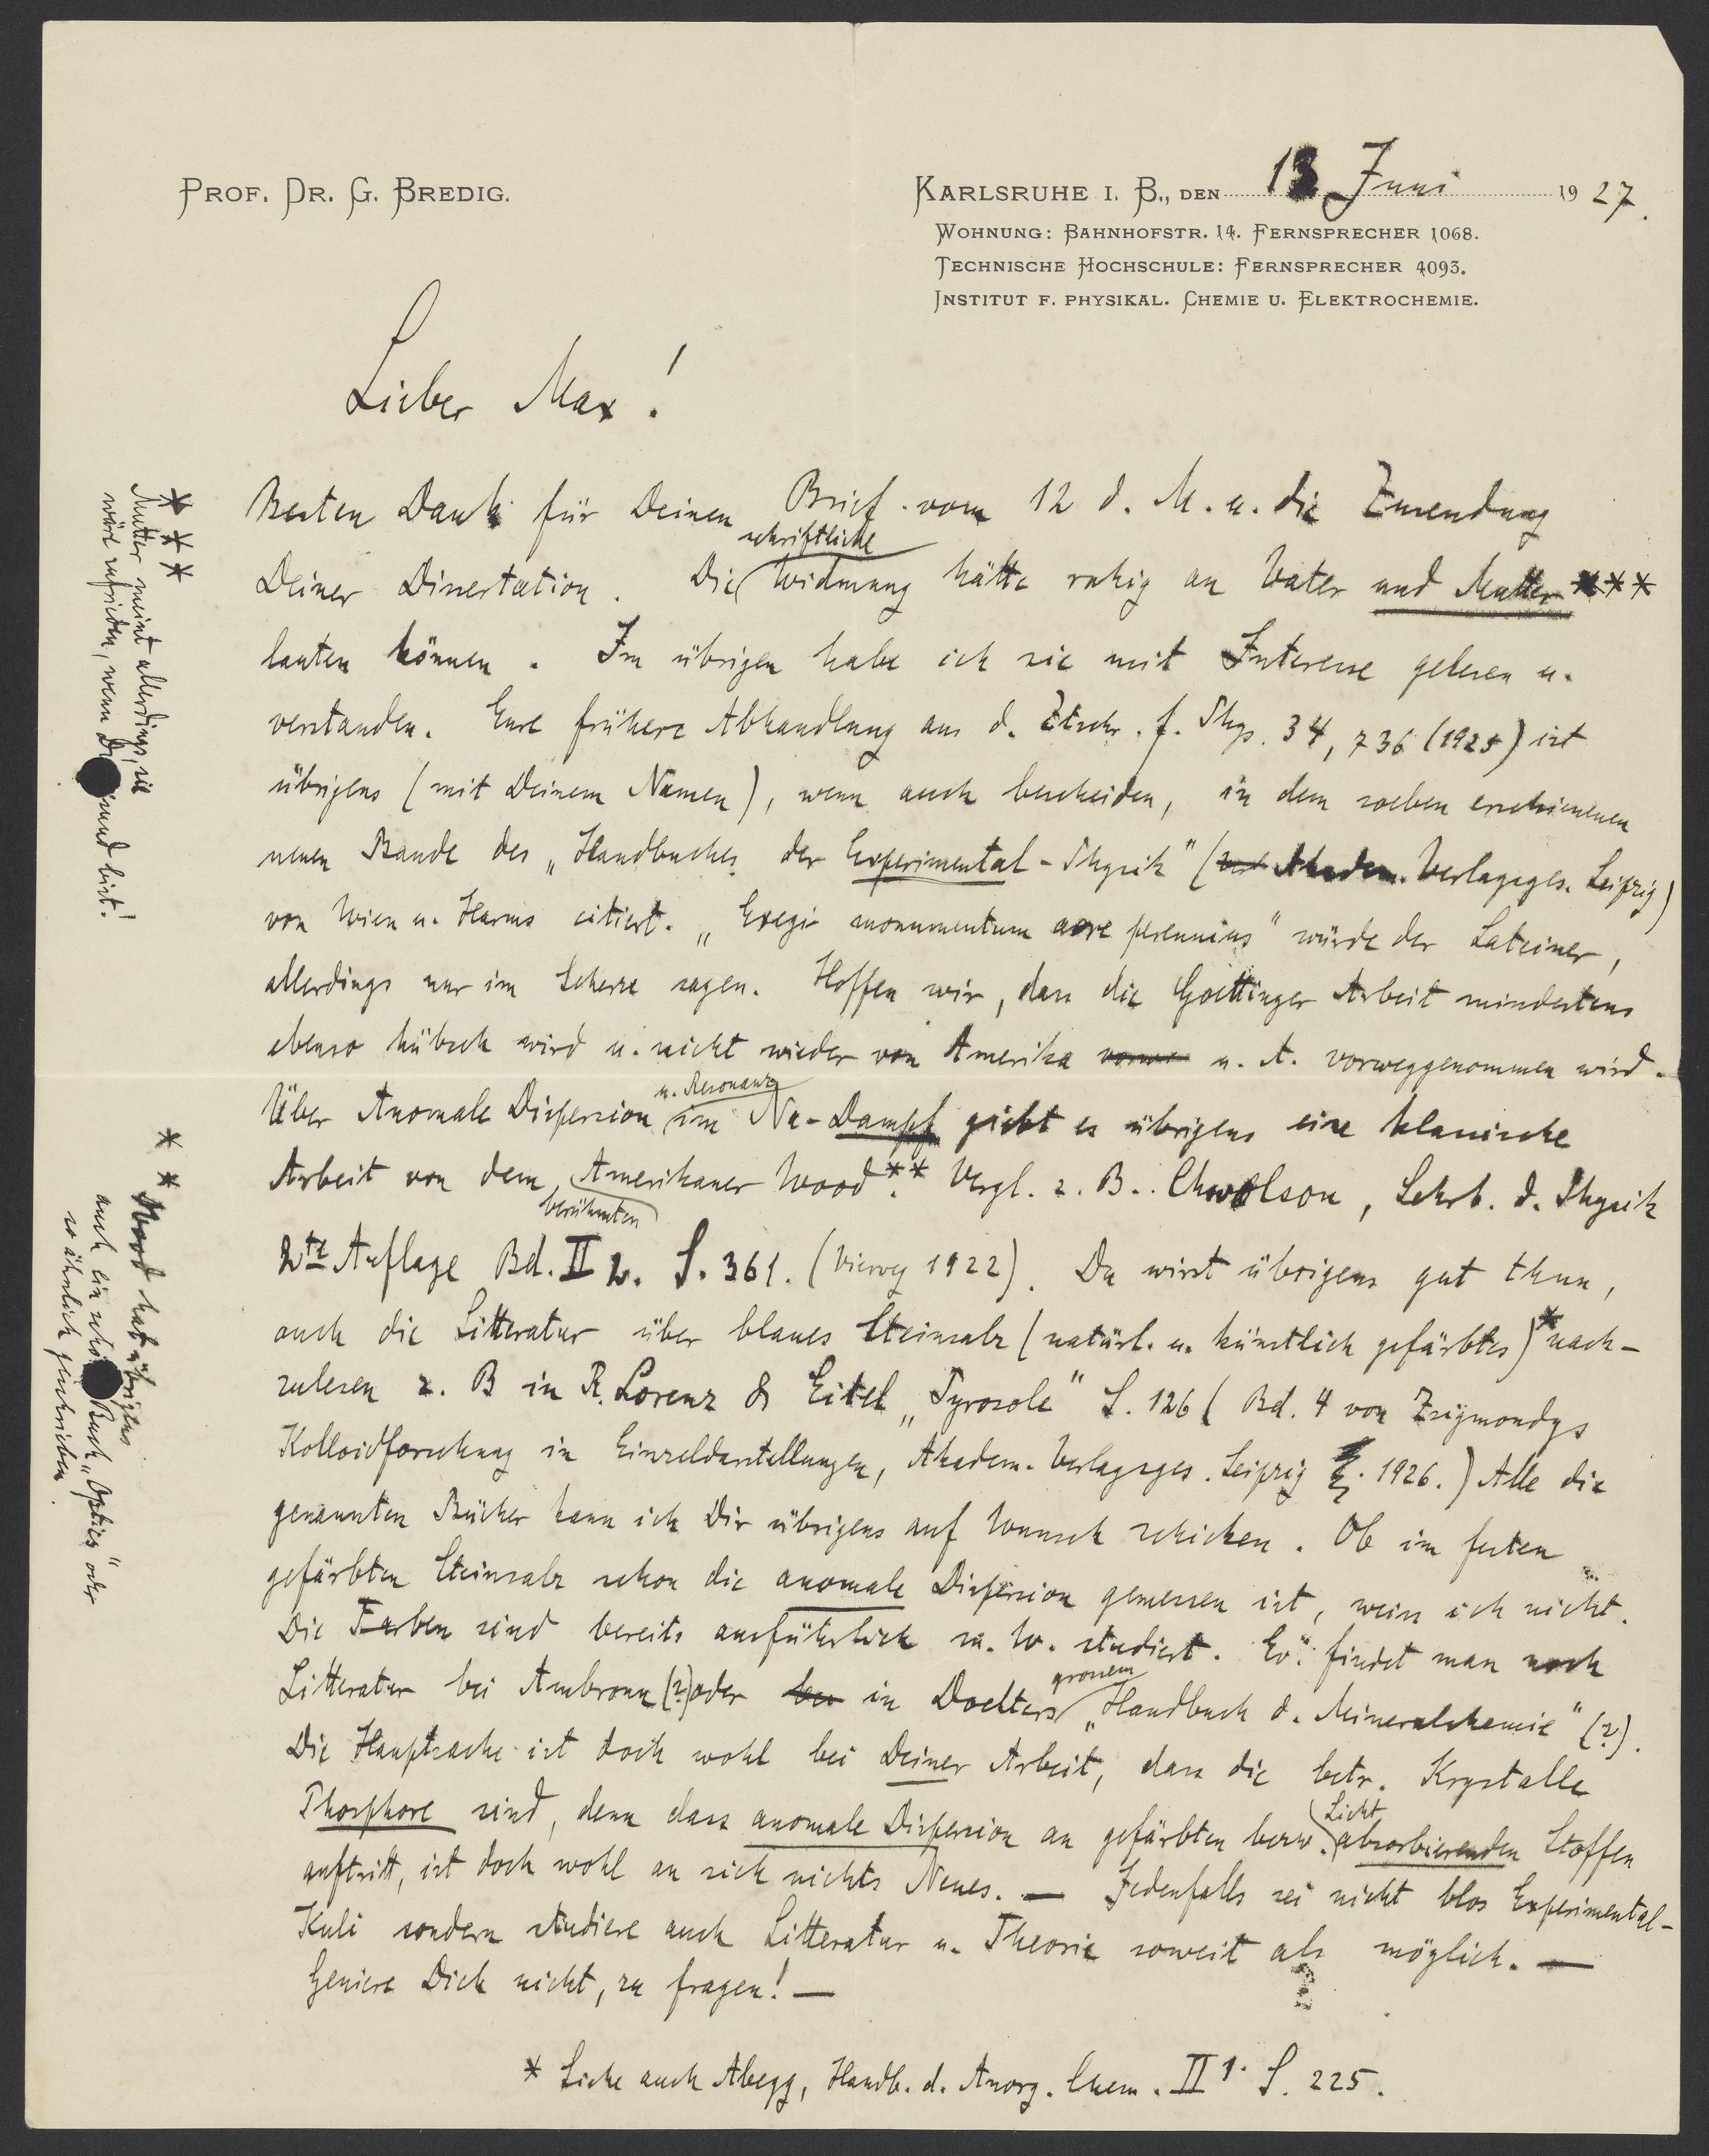 PROF. DR. G. BREDIG.
KARLSRUHE I. B., DEN 13 Juni 1927.
WOHNUNG: BAHNHOFSTR. 14. FERNSPRECHER 1068.
TECHNISCHE HOCHSCHULE: FERNSPRECHER 4093.
INSTITUT F. PHYSIKAL. CHEMIE U. ELEKTROCHEMIE.
Lieber Max!
Besten Dank für Deinen Brief vom 12 d. M. u. die Zusendung
Deiner Dissertation. Die schriftliche Widmung hätte ruhig an Vater und Mutter ***
lauten können. Im übrigen habe ich sie mit Interesse gelesen u.
verstanden. Eure frühere Abhandlung aus d. Ztschr. f. Phys. 34, 736 (1925) ist
übrigens (mit Deinem Namen), wenn auch bescheiden, in dem soeben erschienenen
neuen Bande des „Handbuches der Experimental-Physik" (Akadem. Verlagsges. Leipzig)
von Wien u. Harms citiert. „Exegi monumentum aere perennius" würde der Lateiner,
allerdings nur im Scherze sagen. Hoffen wir, dass die Goettinger Arbeit mindestens
ebenso hübsch wird u. nicht wieder von Amerika u. A. vorweggenommen wird.
Über Anomale Dispersion u. Resonanz im Na-Dampf giebt es übrigens eine klassische
Arbeit von dem berühmten Amerikaner Wood**. Vergl. z. B. Chwolson, Lehrb. d. Physik
2te Auflage Bd. II 2. S. 361. (Vieweg 1922). Du wirst übrigens gut thun,
auch die Litteratur über blaues Steinsalz (natürl. u. künstlich gefärbtes)* nach-
zulesen z. B in R. Lorenz & Eitel „Pyrosole" S. 126 (Bd. 4 von Zsigmondys
Kolloidforschung in Einzeldarstellungen, Akadem. Verlagsges. Leipzig 1926.) Alle die
genannten Bücher kann ich Dir übrigens auf Wunsch schicken. Ob im festen
gefärbten Steinsalz schon die anomale Dispersion gemessen ist, weiss ich nicht.
Die Farben sind bereits ausführlich u. W. studiert. Ev. findet man noch
Litteratur bei Ambronn (?) oder in Doelters grossem „Handbuch d. Mineralchemie" (?).
Die Hauptsache ist doch wohl bei Deiner Arbeit, dass die betr. Krystalle
Phosphore sind, denn dass anomale Dispersion an gefärbten bezw. Licht absorbierenden Stoffen
auftritt, ist doch wohl an sich nichts Neues. — Jedenfalls sei nicht blos Experimental-
Kuli sondern studiere auch Litteratur u. Theorie soweit als möglich. —
Geniere Dich nicht, zu fragen! —
* Siehe auch Abegg, Handb. d. Anorg. Chem. II 1. S. 225.
***
Mutter meint allerdings, sie
wäre zufrieden, wenn Du gesund bist!
**
Wood hat übrigens
auch ein schönes Buch „Optics" oder
so ähnlich geschrieben.